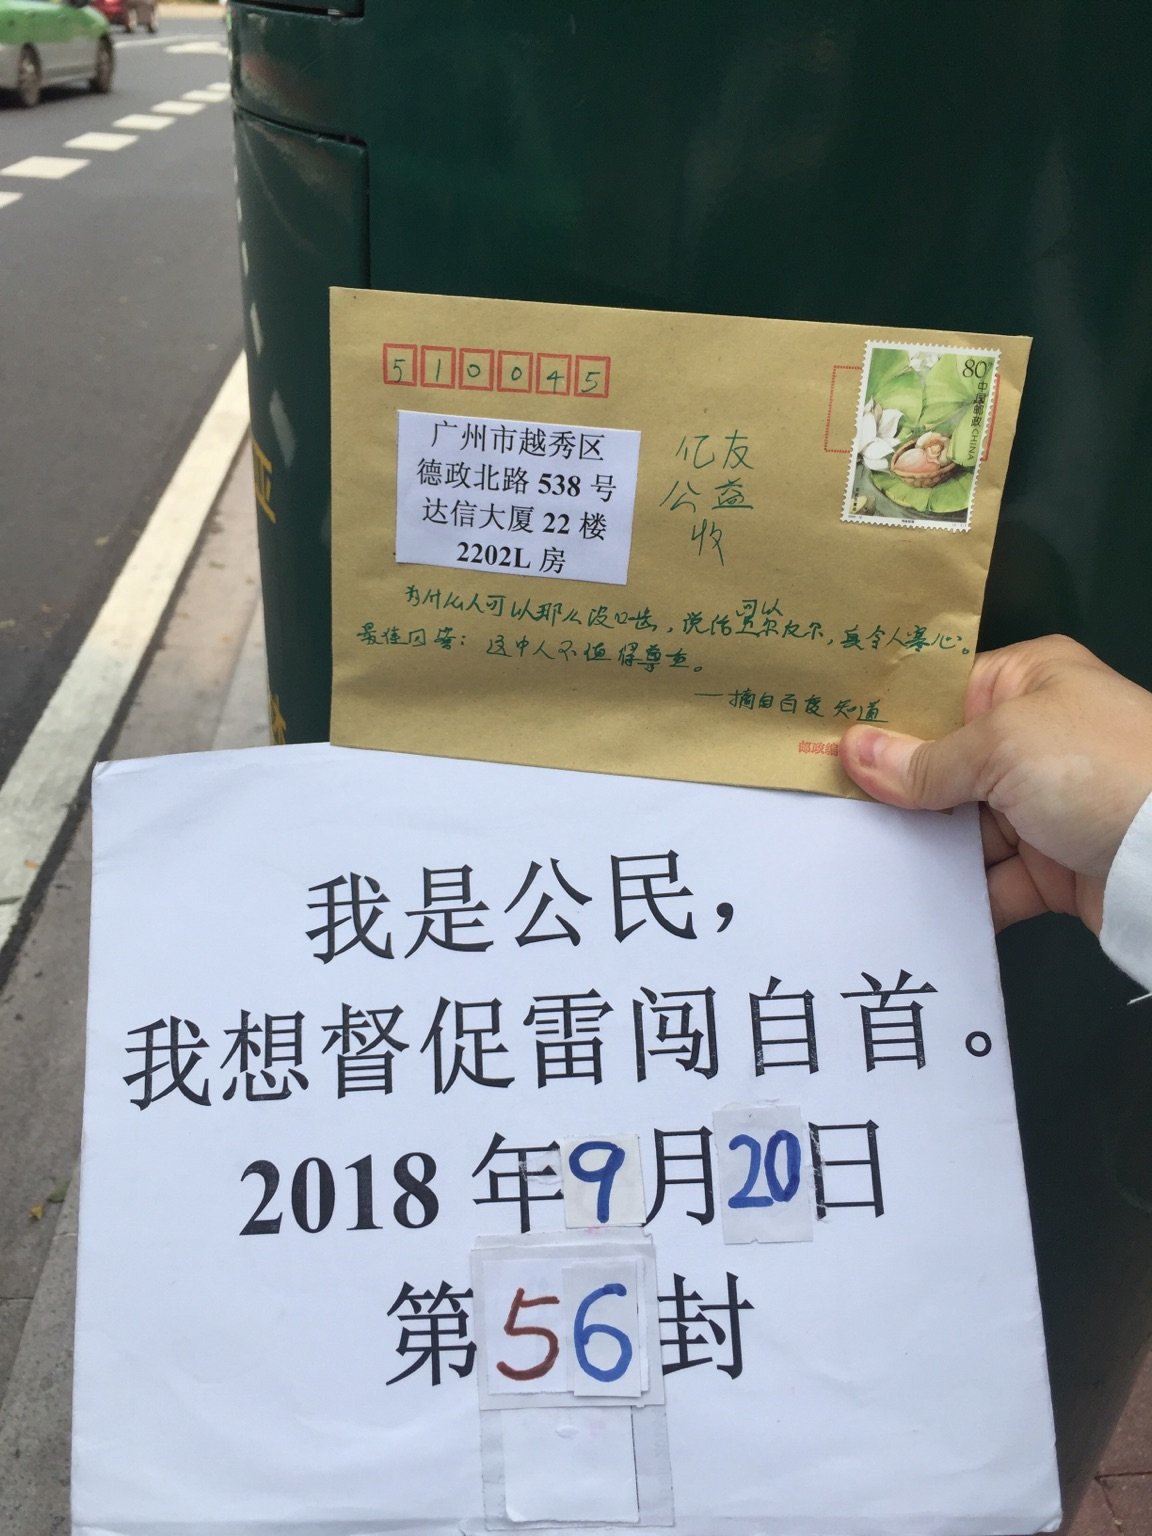 510045
80
中国邮政
CHINA
广州市越秀区
德政北路 538 号
达信大厦 22 楼
2202L 房
亿友
公益
收
为什么人可以那么没口齿，说话可以出尔反尔，真令人寒心。
最佳回答：这中人不值得尊重。
—摘自百度知道
邮政编
我是公民，
我想督促雷闯自首。
2018 年9月20日
第56封